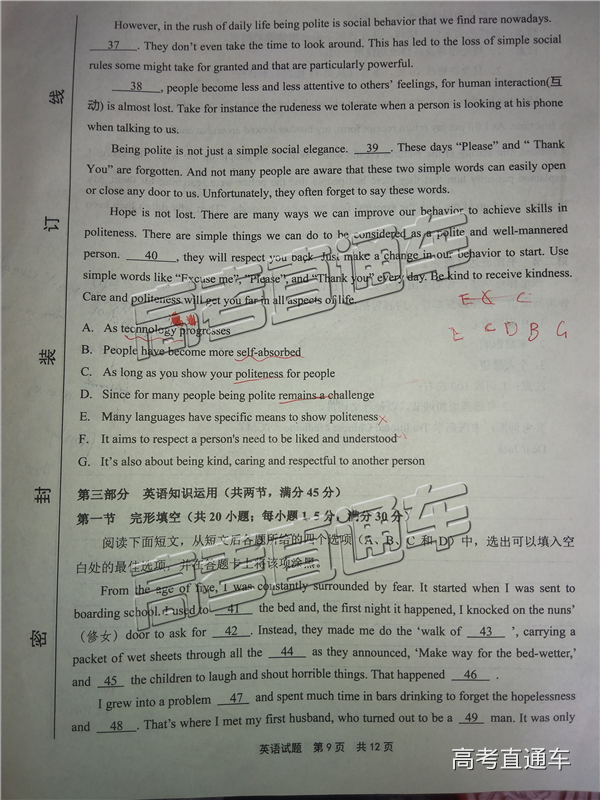 However, in the rush of daily life being polite is social behavior that we find rare nowadays.
37 . They don't even take the time to look around. This has led to the loss of simple social
rules some might take for granted and that are particularly powerful.
38 , people become less and less attentive to others' feelings, for human interaction(互
动) is almost lost. Take for instance the rudeness we tolerate when a person is looking at his phone
when talking to us.
Being polite is not just a simple social elegance. 39 . These days "Please" and " Thank
You" are forgotten. And not many people are aware that these two simple words can easily open
or close any door to us. Unfortunately, they often forget to say these words.
Hope is not lost. There are many ways we can improve our behavior to achieve skills in
politeness. There are simple things we can do to be considered as a polite and well-mannered
person. 40 , they will respect you back. Just make a change in our behavior to start. Use
simple words like "Excuse me", "Please", and "Thank you" every day. Be kind to receive kindness.
Care and politeness will get you far in all aspects of life.
E C
E C D B G
A. As technology progresses
B. People have become more self-absorbed
C. As long as you show your politeness for people
D. Since for many people being polite remains a challenge
E. Many languages have specific means to show politeness
F. It aims to respect a person's need to be liked and understood
G. It's also about being kind, caring and respectful to another person
第三部分 英语知识运用（共两节，满分 45 分）
第一节 完形填空（共 20 小题；每小题 1.5 分，满分 30 分）
阅读下面短文，从短文后各题所给的四个选项（A、B、C 和 D）中，选出可以填入空
白处的最佳选项，并在答题卡上将该项涂黑。
From the age of five, I was constantly surrounded by fear. It started when I was sent to
boarding school. I used to 41 the bed and, the first night it happened, I knocked on the nuns'
（修女）door to ask for 42 . Instead, they made me do the 'walk of 43 ', carrying a
packet of wet sheets through all the 44 as they announced, 'Make way for the bed-wetter,'
and 45 the children to laugh and shout horrible things. That happened 46 .
I grew into a problem 47 and spent much time in bars drinking to forget the hopelessness
and 48 . That's where I met my first husband, who turned out to be a 49 man. It was only
英语试题 第 9 页 共 12 页
线
订
装
封
密
高考直通车
高考直通车
高考直通车